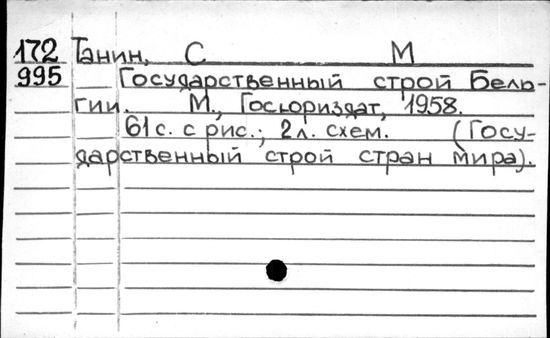 172 Танин, С М
995 Государственный строй Бель-
гии. М., Госюриздат, 1958.
61 с. с рис.; 2 л. схем. (Госу-
дарственный строй стран мира).